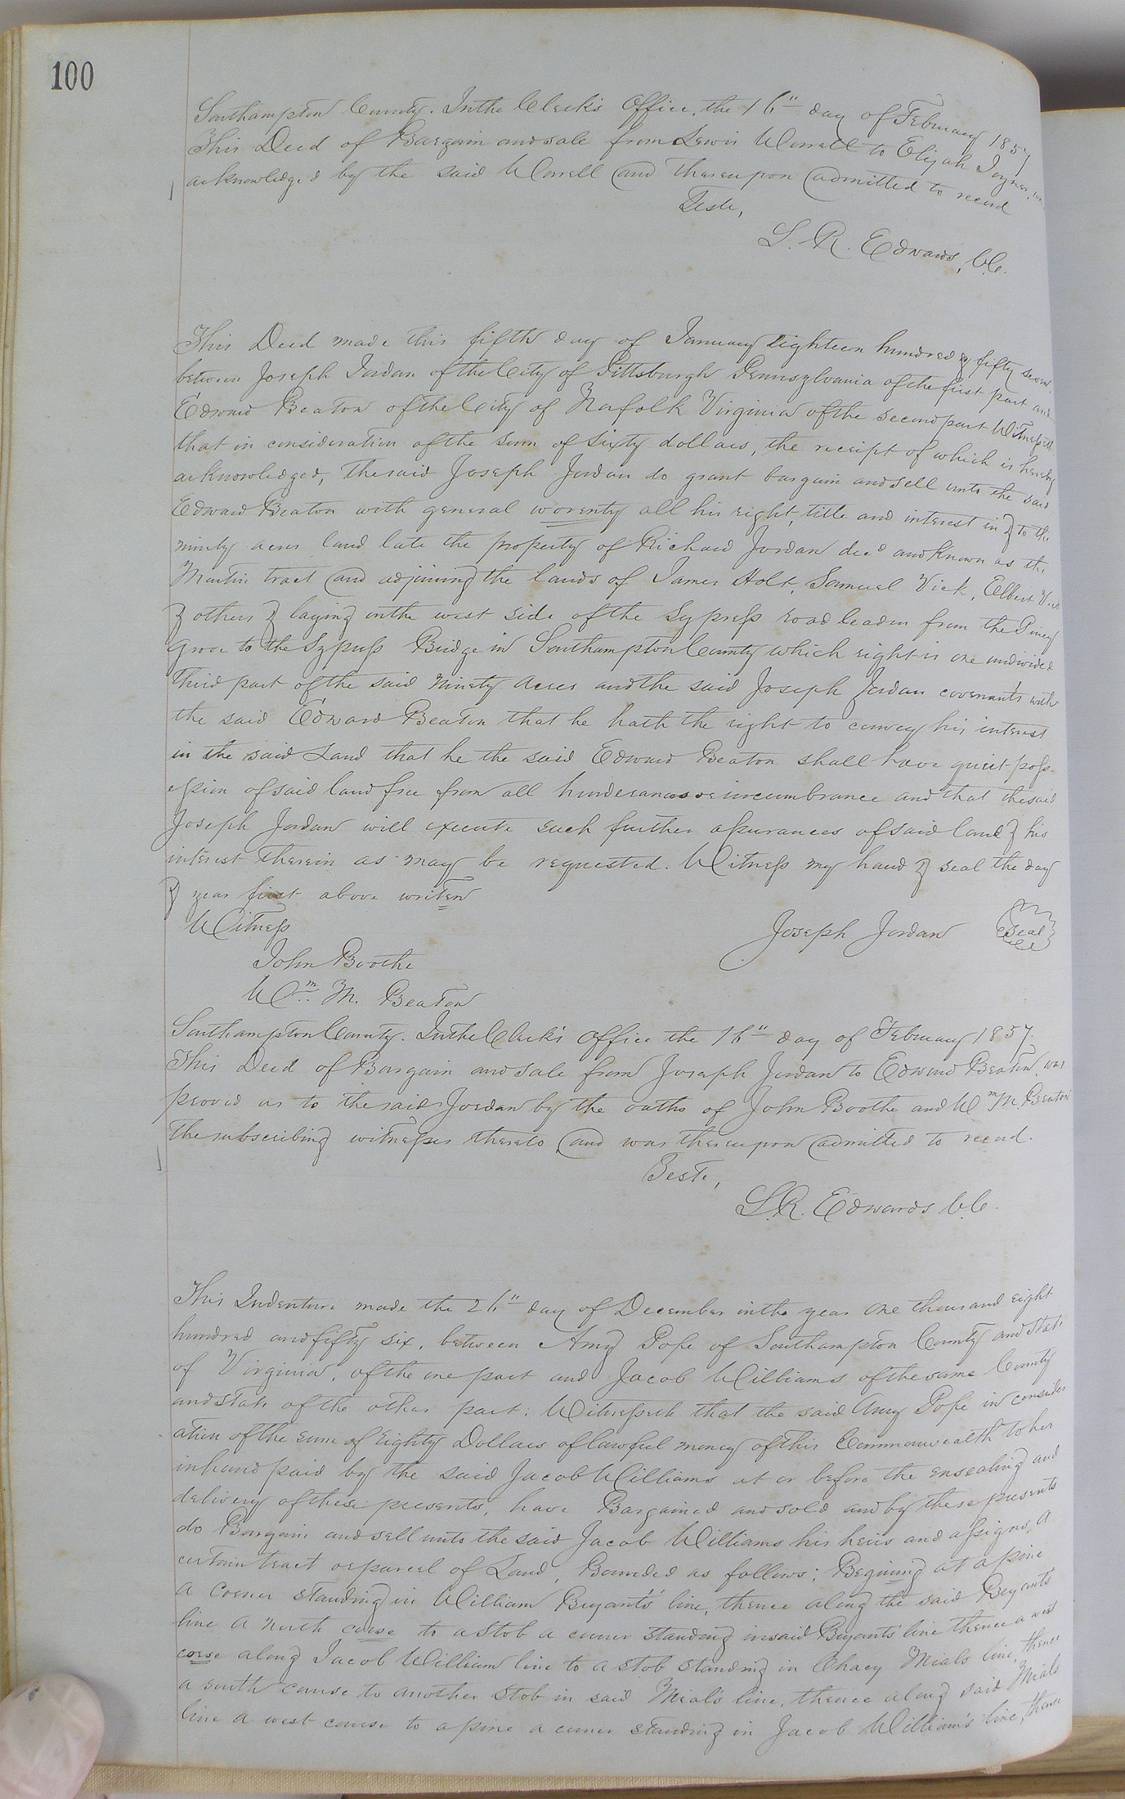 100
Southampton County. In the Clerk's Office, the 16" day of February 1857
This Deed of Bargain and sale from Lewis Worrell to Elijah Joyner, was
acknowledged by the said Worrell and thereupon admitted to record
Teste,
L. R. Edwards, C.C.
This Deed made this fifth day of January Eighteen hundred & fifty seven
between Joseph Jordan of the City of Pittsburgh Pennsylvania of the first part and
Edward Beaton of the City of Norfolk Virginia of the second part Witnesseth
that in consideration of the sum of sixty dollars, the receipt of which is hereby
acknowledged, the said Joseph Jordan do grant bargain and sell unto the said
Edward Beaton with general worenty all his right, title and interest in & to the
ninety acres land late the property of Richard Jordan decd and known as the
Martin tract and adjoining the lands of James Holt, Samuel Vick, Elbert Vick
& others & laying in the west side of the Sypress road leadin from the Piney
Grove to the Sypress Bridge in Southampton County which right is one undivided
third part of the said Ninety acres and the said Joseph Jordan covenants with
the said Edward Beaton that he hath the right to convey his interest
in the said Land that he the said Edward Beaton shall have quiet poss-
ession of said land free from all hinderances or incumbrance and that the said
Joseph Jordan will execute such further assurances of said land & his
interest therein as may be requested. Witness my hand & seal the day
& year first above writen
Witness
Joseph Jordan Seal
John Boothe
Wm. M. Beaton
Southampton County. In the Clerk's Office the 16" day of February 1857.
This Deed of Bargain and sale from Joseph Jordan to Edward Beaton was
proved as to the said Jordan by the oaths of John Boothe and Wm M. Beaton
the subscribing witnesses thereto and was thereupon admitted to record.
Teste,
L. R. Edwards C.C.
This Indenture made the 26" day of December in the year one thousand eight
hundred and fifty six, between Amy Pope of Southampton County and State
of Virginia, of the one part and Jacob Williams of the same County
and State of the other part: Witnesseth that the said Amy Pope in consider
ation of the sum of Eighty Dollars of lawful money of this Commonwealth to her
in hand paid by the said Jacob Williams at or before the ensealing and
delivery of these presents, have Bargained and sold and by these presents
do Bargain and sell unto the said Jacob Williams his heirs and assigns, a
certain tract or parcel of Land, Bounded as follows: Begining at a pine
a corner standing in William Bryant's line, thence along the said Bryants
line a north corse to a stob a corner standing in said Bryants line thence a west
corse along Jacob William line to a stob standing in Chacy Mials line, thence
a south course to another stob in said Mial's line, thence along said Mials
line a west course to a pine a corner standing in Jacob William's line, thence